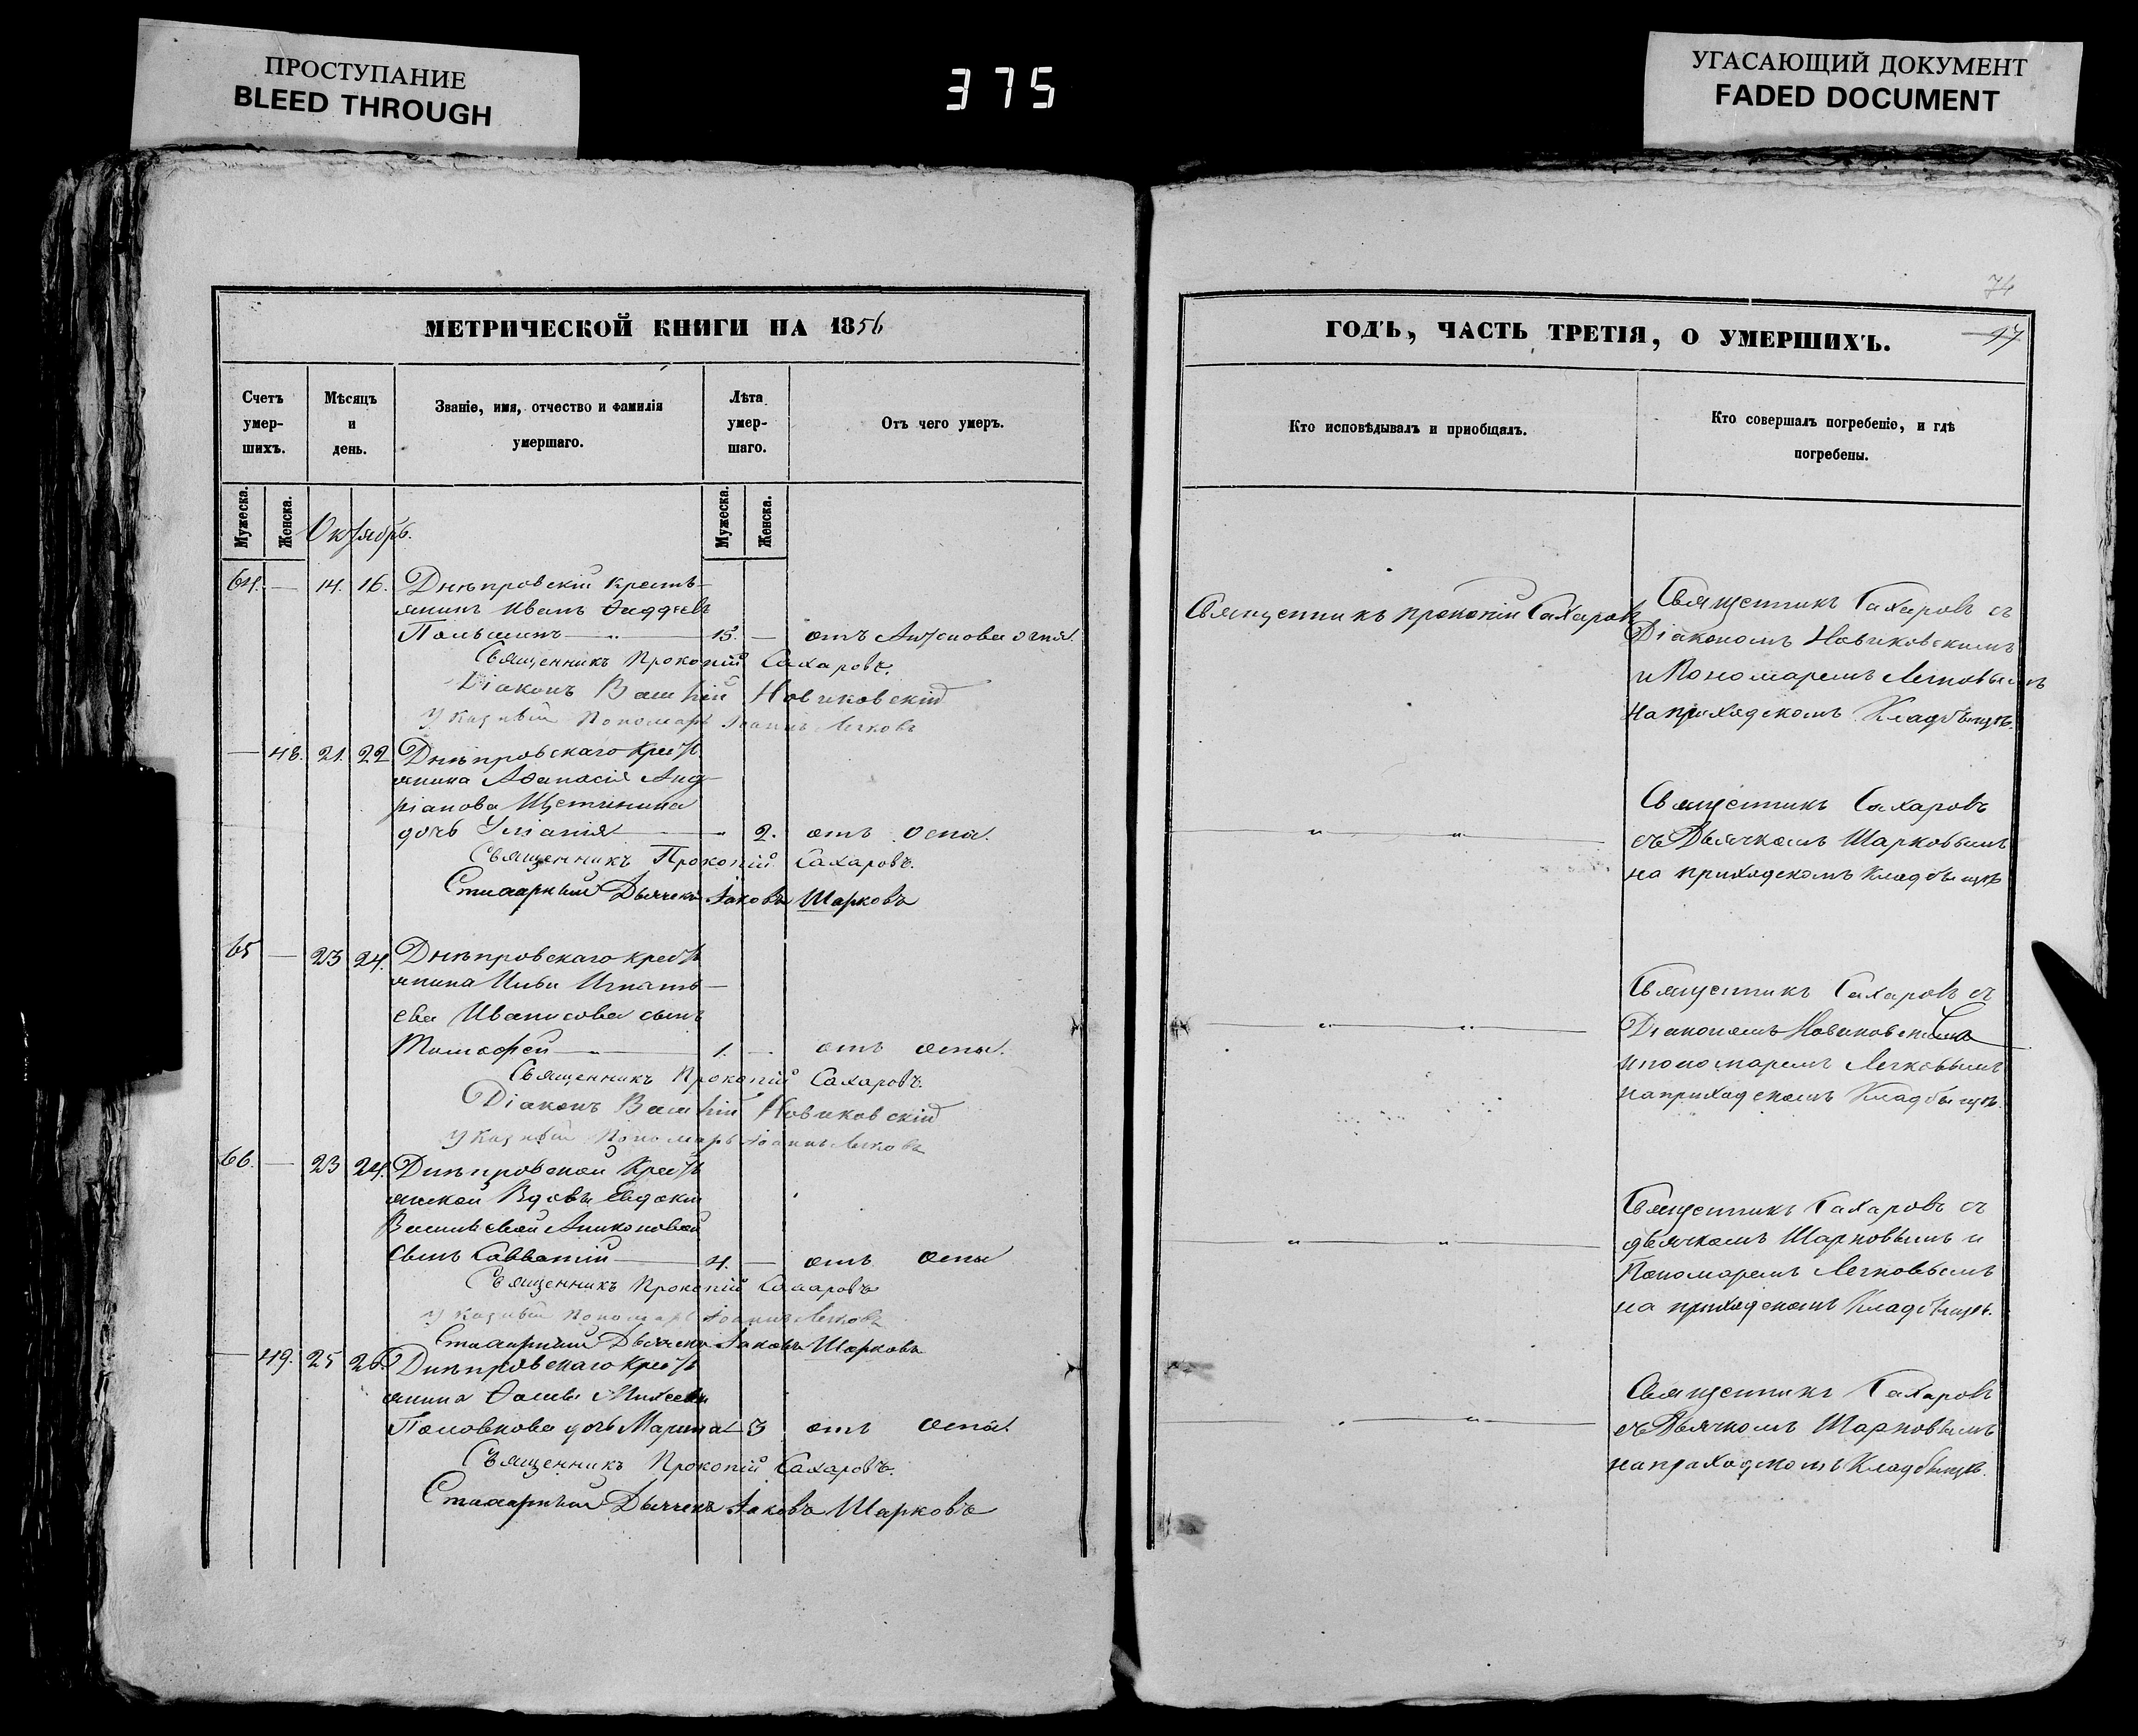 ПРОСТУПАНИЕ
BLEED THROUGH
375
УГАСАЮЩИЙ ДОКУМЕНТ
FADED DOCUMENT
МЕТРИЧЕСКОЙ КНИГИ НА 1856
Счетъ умер-шихъ.
Мѣсяцъ и день.
Званіе, имя, отчество и фамилія умершаго.
Лѣта умер-шаго.
Отъ чего умеръ.
Мужеска. Женска. Мужеска. Женска.
Октябрь.
64. — 14. 16. Днѣпровскій крестъ-
янинъ Иванъ Ѳаддѣевъ
Польшинъ — 15. — отъ Антонова огня.
Священникъ Прокопій Сахаровъ.
Діаконъ Василій Новиковскій
Указный Пономарь Іоаннъ Легковъ
— 48. 21. 22 Днѣпровскаго крест
янина Аѳанасія Анд-
ріанова Щетинина
дочь Уліанія — 2. отъ оспы.
Священникъ Прокопій Сахаровъ.
Стихарный Дьячекъ Іаковъ Шарковъ
65 — 23 24. Днѣпровскаго крест
янина Ильи Игнать-
ева Иванисова сынъ
Тимофей — 1. — отъ оспы.
Священникъ Прокопій Сахаровъ.
Діаконъ Василій Новиковскій
Указный Пономарь Іоаннъ Легковъ
66. — 23 24. Днѣпровской Крест
янской Вдовы Евдокіи
Васильевой
сынъ Савватій — 4. — отъ оспы
Священникъ Прокопій Сахаровъ
Указный Пономарь Іоаннъ Легковъ
Стихарный Дьячекъ Іаковъ Шарковъ
— 49. 25 26. Днѣпровскаго Крест
янина Ѳомы Михеева
Половкова дочь Марина 3 отъ оспы.
Священникъ Прокопій Сахаровъ.
Стихарный Дьячекъ Іаковъ Шарковъ
74
ГОДЪ, ЧАСТЬ ТРЕТІЯ, О УМЕРШИХЪ.
Кто исповѣдывалъ и пріобщалъ.
Кто совершалъ погребеніе, и гдѣ погребены.
Священникъ Прокопій Сахаровъ
Священникъ Сахаровъ съ
Діакономъ Новиковскимъ
и Пономаремъ Легковымъ
на приходскомъ Кладбищѣ.
Священникъ Сахаровъ
съ Дьячкомъ Шарковымъ
на приходскомъ кладбищѣ
Священникъ Сахаровъ съ
Діакономъ Новиковскимъ
и пономаремъ Легковымъ
на приходскомъ Кладбищѣ.
Священникъ Сахаровъ съ
дьячкомъ Шарковымъ и
Пономаремъ Легковымъ
на приходскомъ Кладбищѣ.
Священникъ Сахаровъ
съ Дьячкомъ Шарковымъ
на приходскомъ Кладбищѣ.